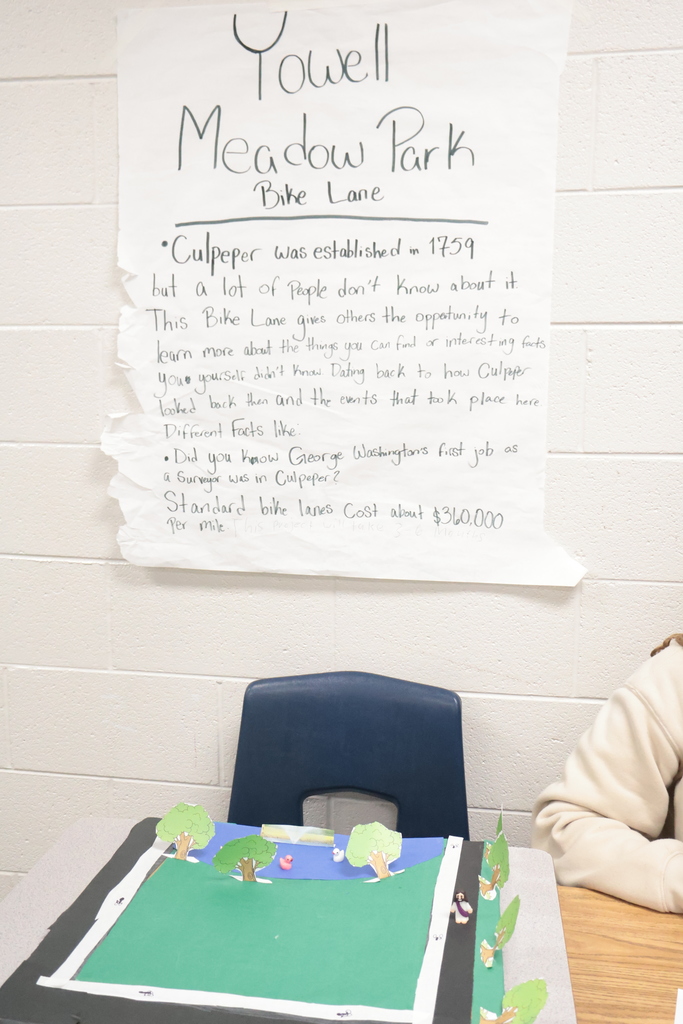 Yowell
Meadow Park
Bike Lane
• Culpeper was established in 1759
but a lot of People don't know about it.
This Bike Lane gives others the opportunity to
learn more about the things you can find or interesting facts
you yourself didn't know Dating back to how Culpeper
looked back then and the events that took place here
Different Facts like:
• Did you know George Washington's first job as
a Surveyor was in Culpeper?
Standard bike lanes Cost about $360,000
Per mile.